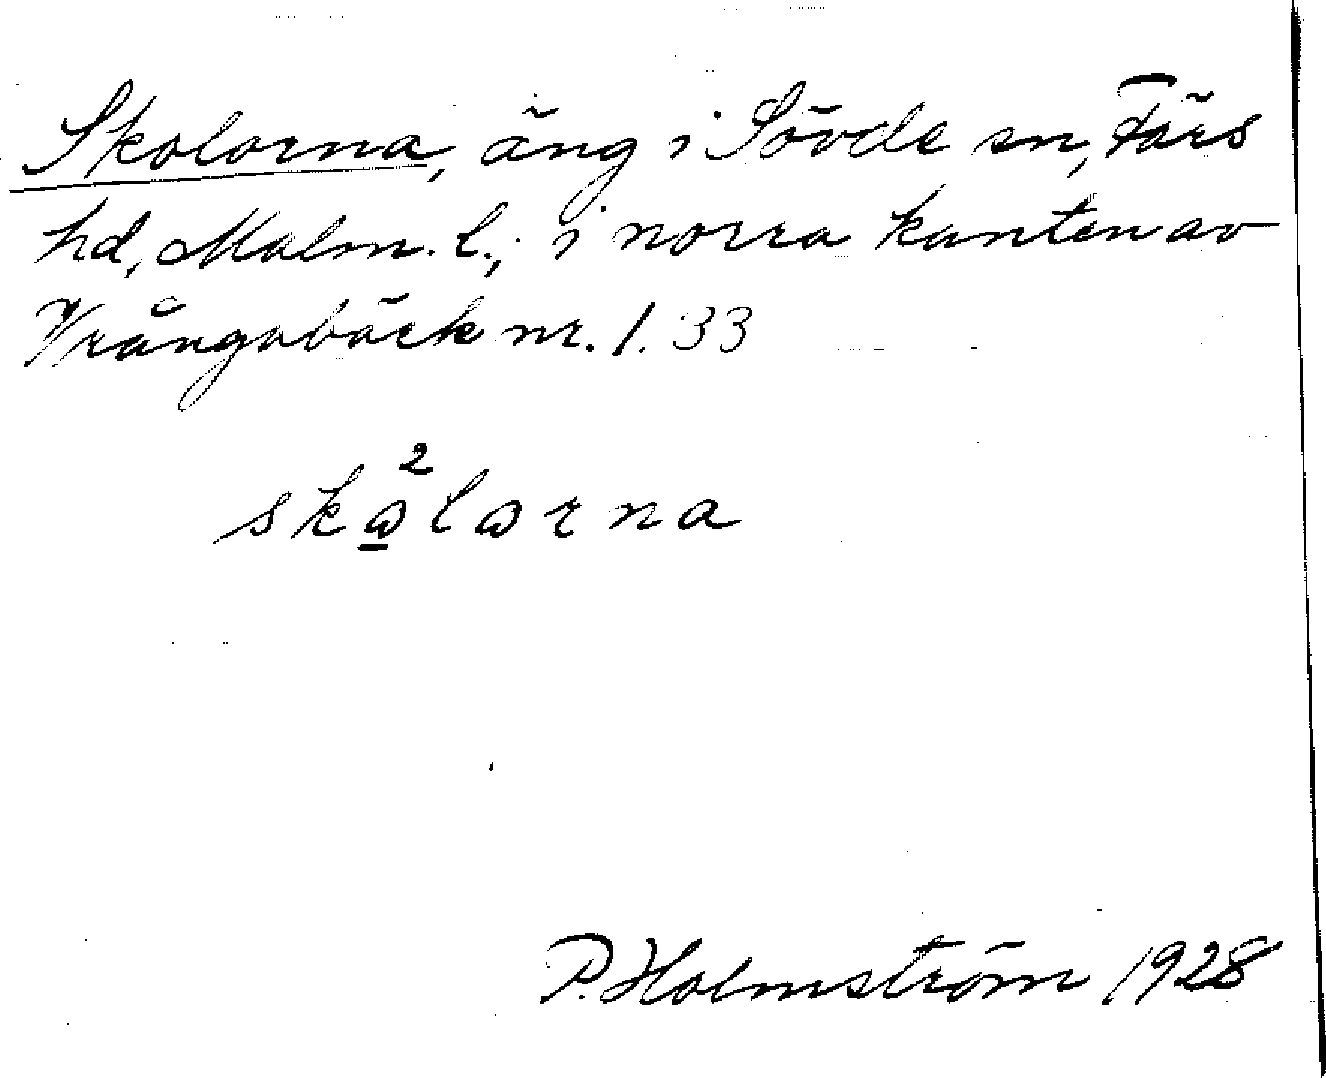 Skolorna, äng i Sövde sn, Färs
hd, Malm. l.; i norra kanten av
Vrångabäck nr. 1. 33
skω̲²lωrna
P. Holmström 1928